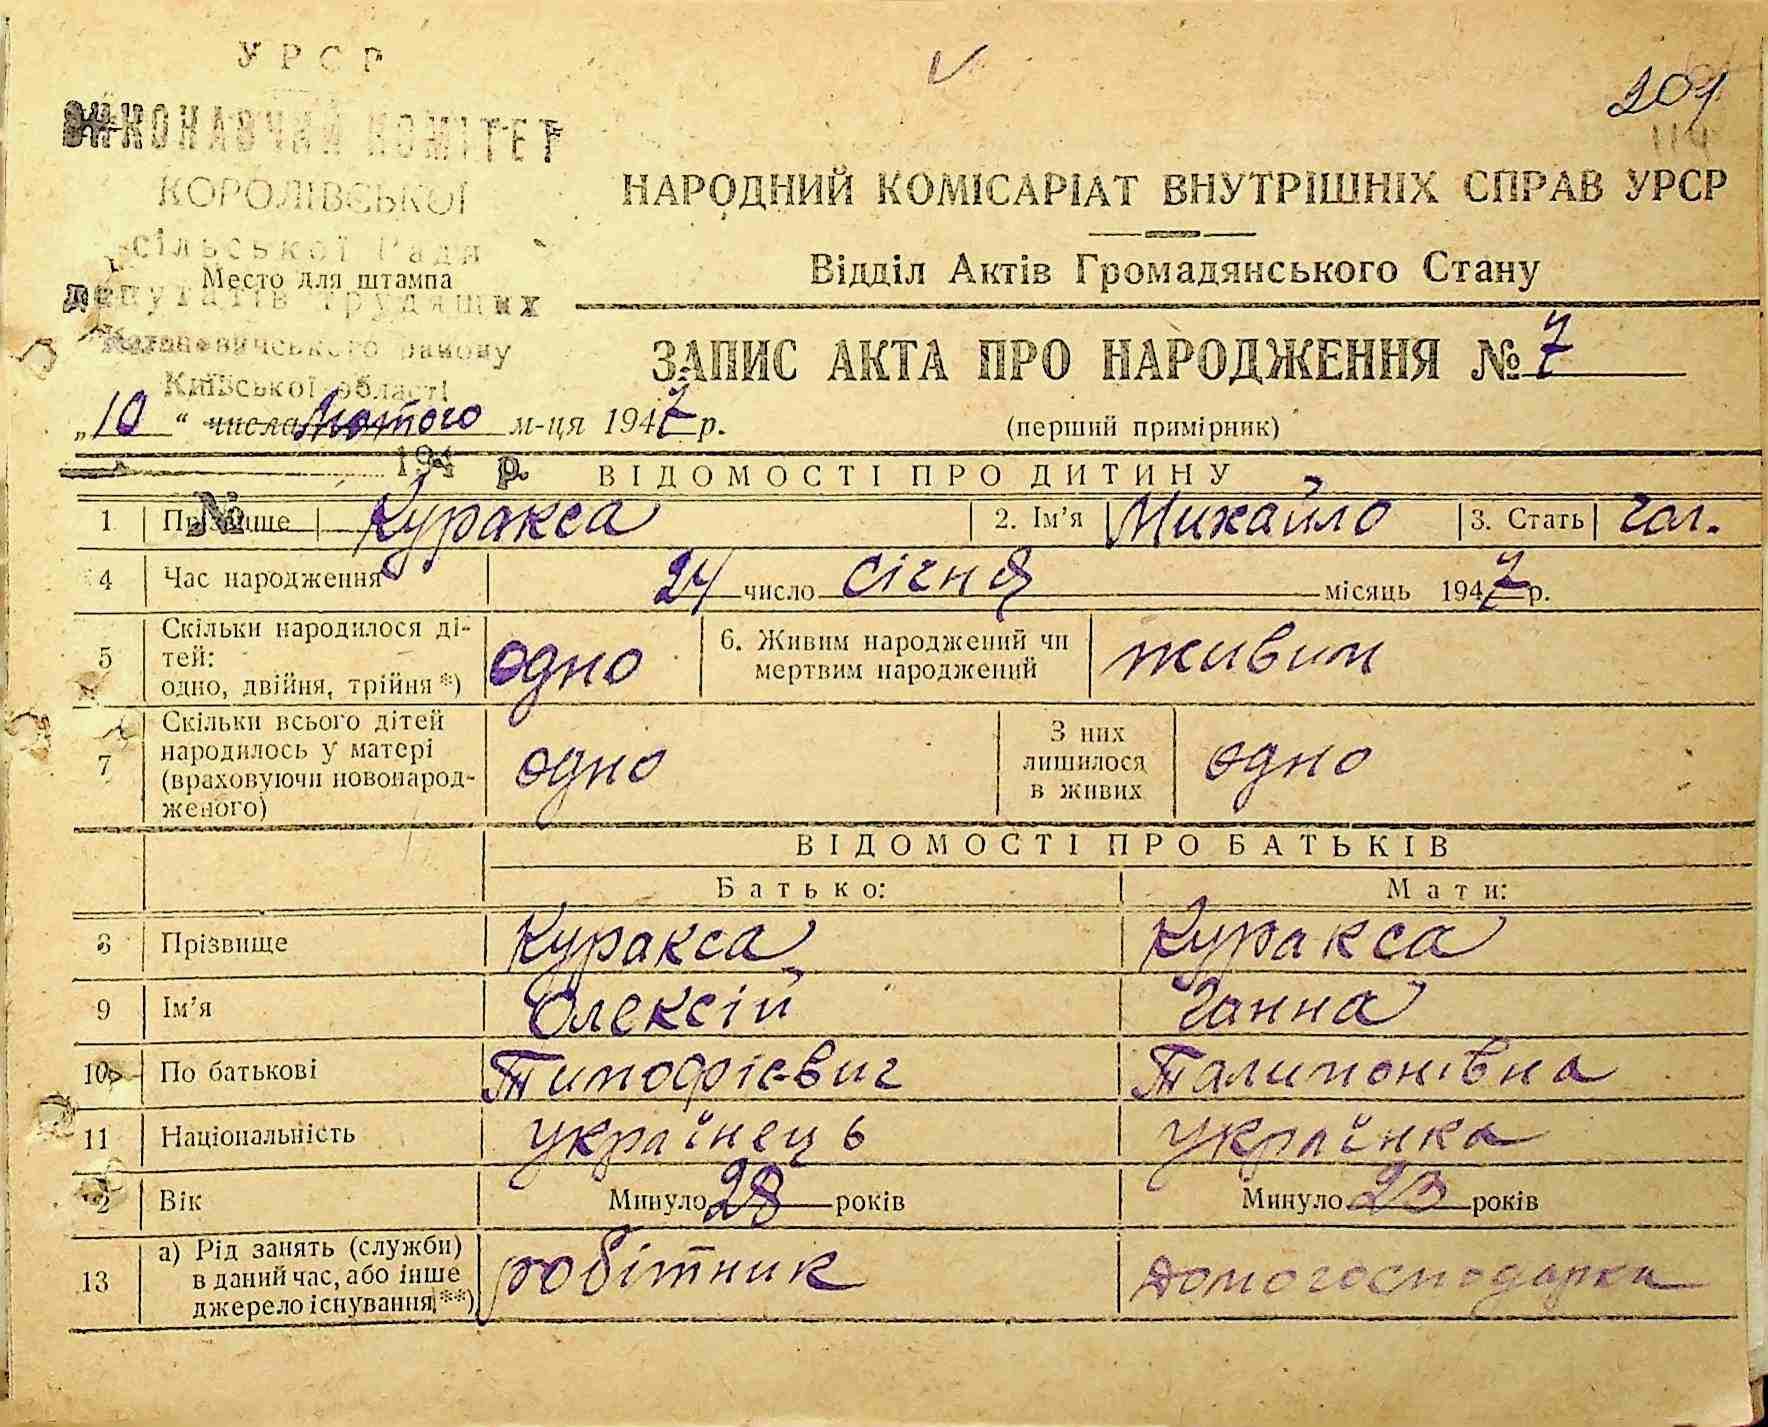 УРСР
ВИКОНАВЧИЙ КОМІТЕТ
КОРОЛІВСЬКОЇ
сільської Ради
депутатів трудящих
Кагановичського району
Київської області
194 р.
№
Место для штампа
209
114
НАРОДНИЙ КОМІСАРІАТ ВНУТРІШНІХ СПРАВ УРСР
Відділ Актів Громадянського Стану
ЗАПИС АКТА ПРО НАРОДЖЕННЯ № 7
„10“ числа лютого м-ця 1947 р.
(перший примірник)
ВІДОМОСТІ ПРО ДИТИНУ
1 Прізвище Куракса 2. Ім'я Михайло 3. Стать чол.
4 Час народження 24 число січня місяць 1947 р.
5 Скільки народилося ді-
тей:
одно, двійня, трійня *) одно 6. Живим народжений чи
мертвим народжений живим
7 Скільки всього дітей
народилось у матері
(враховуючи новонарод-
женого) одно З них
лишилося
в живих одно
ВІДОМОСТІ ПРО БАТЬКІВ
Батько: Мати:
8 Прізвище Куракса Куракса
9 Ім'я Олексій Ганна
10 По батькові Тимофієвич Талимонівна
11 Національність українець українка
12 Вік Минуло 28 років Минуло 23 років
13 а) Рід занять (служби)
в даний час, або інше
джерело існування **) робітник домогосподарка